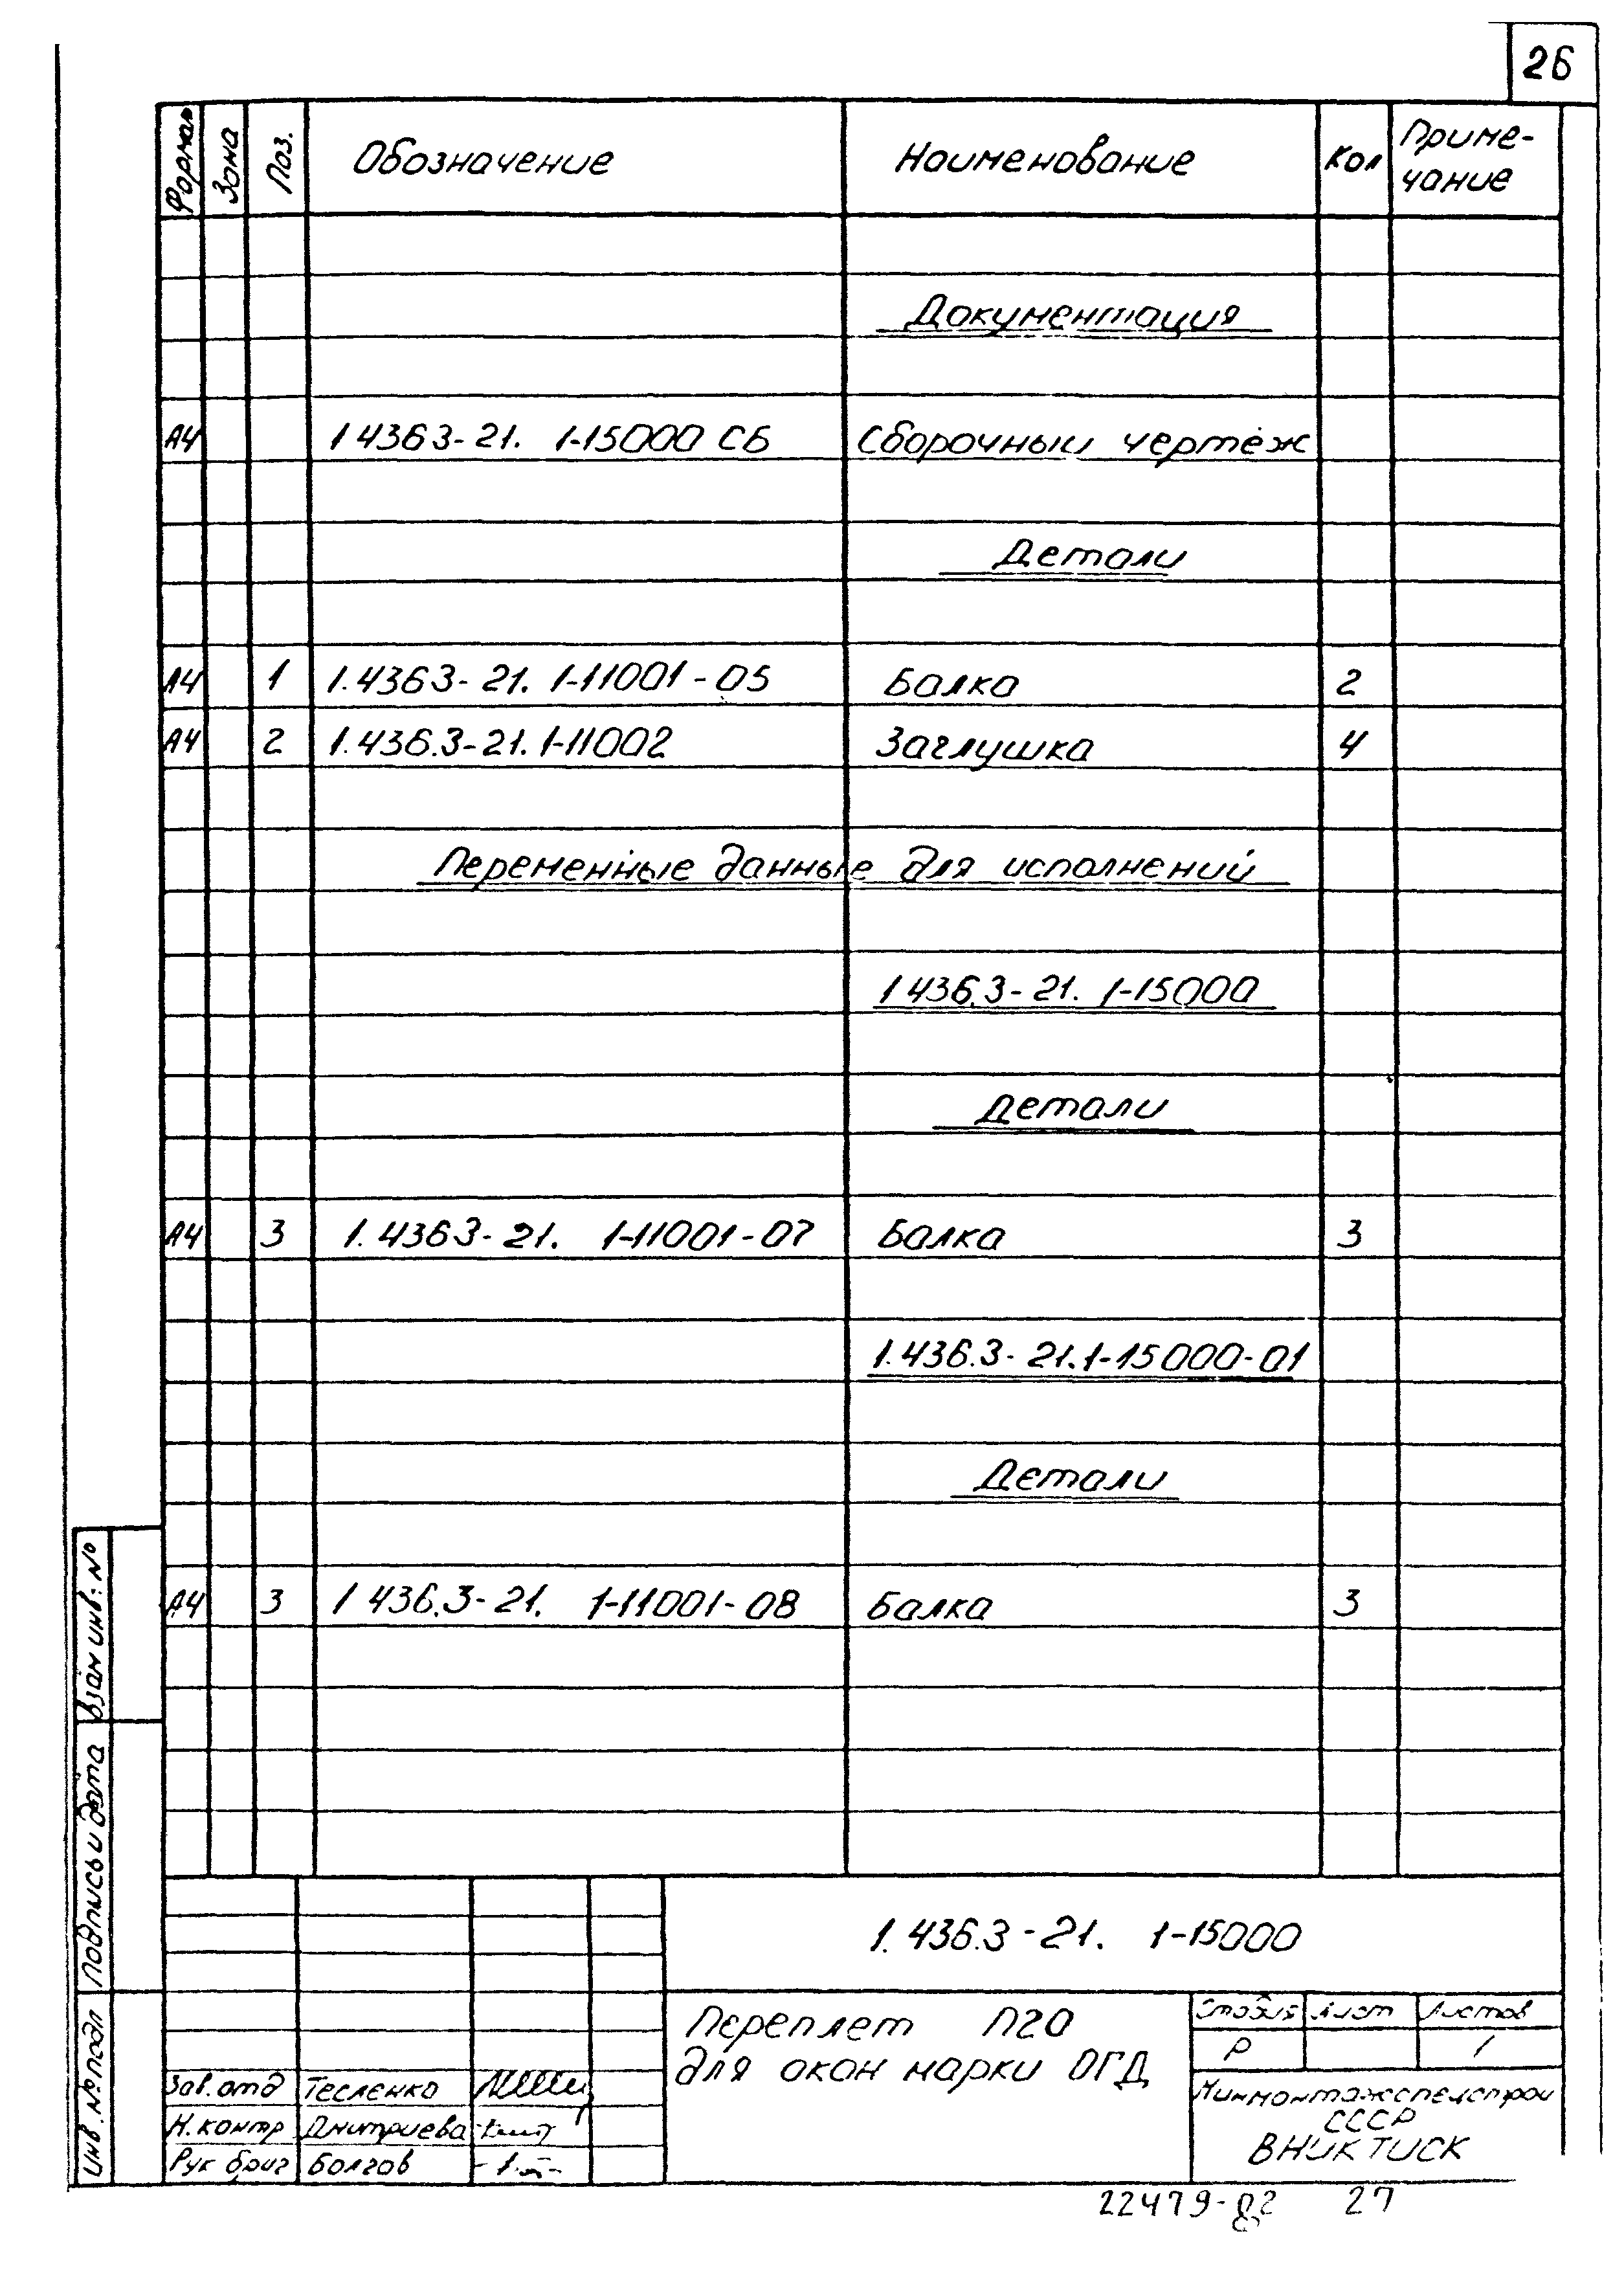 26
Формат Зона Поз. Обозначение Наименование Кол Приме-
чание
Документация
А4 1 436 3-21. 1-15000 СБ Сборочный чертёж
Детали
А4 1 1.436 3-21. 1-11001-05 Балка 2
А4 2 1.436.3-21. 1-11002 Заглушка 4
Переменные данные для исполнений
1 436.3-21. 1-15000
Детали
А4 3 1.436 3-21. 1-11001-07 Балка 3
1.436.3-21.1-15000-01
Детали
А4 3 1 436.3-21. 1-11001-08 Балка 3
Взам инв. №
Подпись и дата
Инв. № подл
1. 436.3-21. 1-15000
Переплет П20
для окон марки ОГД
Стадия Лист Листов
Р 1
Минмонтажспецстрой
СССР
ВНИКТИСК
Зав. отд Тесленко
Н. контр Дмитриева
Рук бриг Болгов
22479- 27